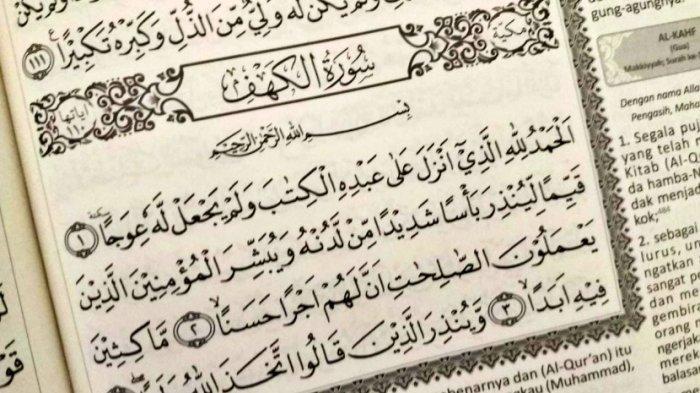 لَّهٗ وَلِيٌّ مِّنَ الذُّلِّ وَكَبِّرْهُ تَكْبِيْرًا ۝١١١
مكية
سُوْرَةُ الْكَهْفِ
اٰيَاتُهَا ١١٠
بِسْمِ اللّٰهِ الرَّحْمٰنِ الرَّحِيْمِ
اَلْحَمْدُ لِلّٰهِ الَّذِيْٓ اَنْزَلَ عَلٰى عَبْدِهِ الْكِتٰبَ وَلَمْ يَجْعَلْ لَّهٗ عِوَجًا ۜ ۝١
قَيِّمًا لِّيُنْذِرَ بَأْسًا شَدِيْدًا مِّنْ لَّدُنْهُ وَيُبَشِّرَ الْمُؤْمِنِيْنَ الَّذِيْنَ
يَعْمَلُوْنَ الصّٰلِحٰتِ اَنَّ لَهُمْ اَجْرًا حَسَنًاۙ ۝٢ مَّاكِثِيْنَ
فِيْهِ اَبَدًاۙ ۝٣ وَّيُنْذِرَ الَّذِيْنَ قَالُوا اتَّخَذَ اللّٰهُ
gung-agungnya.
AL-KAHF
(Gua)
Makkiyyah; Surah ke-
Dengan nama Alla
Pengasih, Maha
1. Segala puj
yang telah m
Kitab (Al-Q
da hamba-N
dak menjad
kok;
2. sebagai
lurus, u
ngatkan
sangat p
dan me
gembira
orang
ngerjak
mereka
balasa
benarnya dan (Al-Qur'an) itu
gkau (Muhammad),